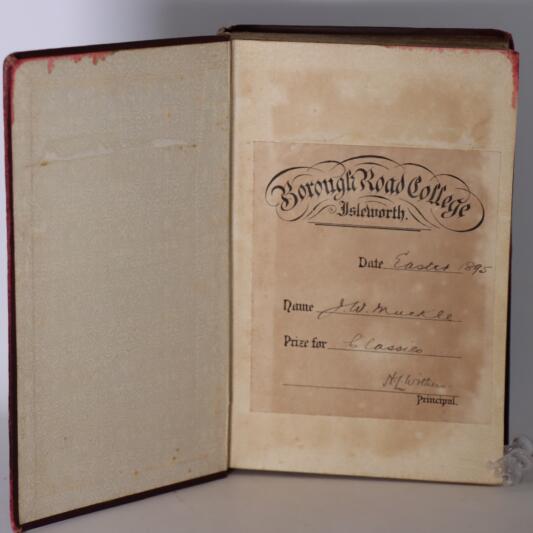 Borough Road College
Isleworth.
Date Easter 1895
Name J. W. Muckle
Prize for Classics
H L Withers
Principal.